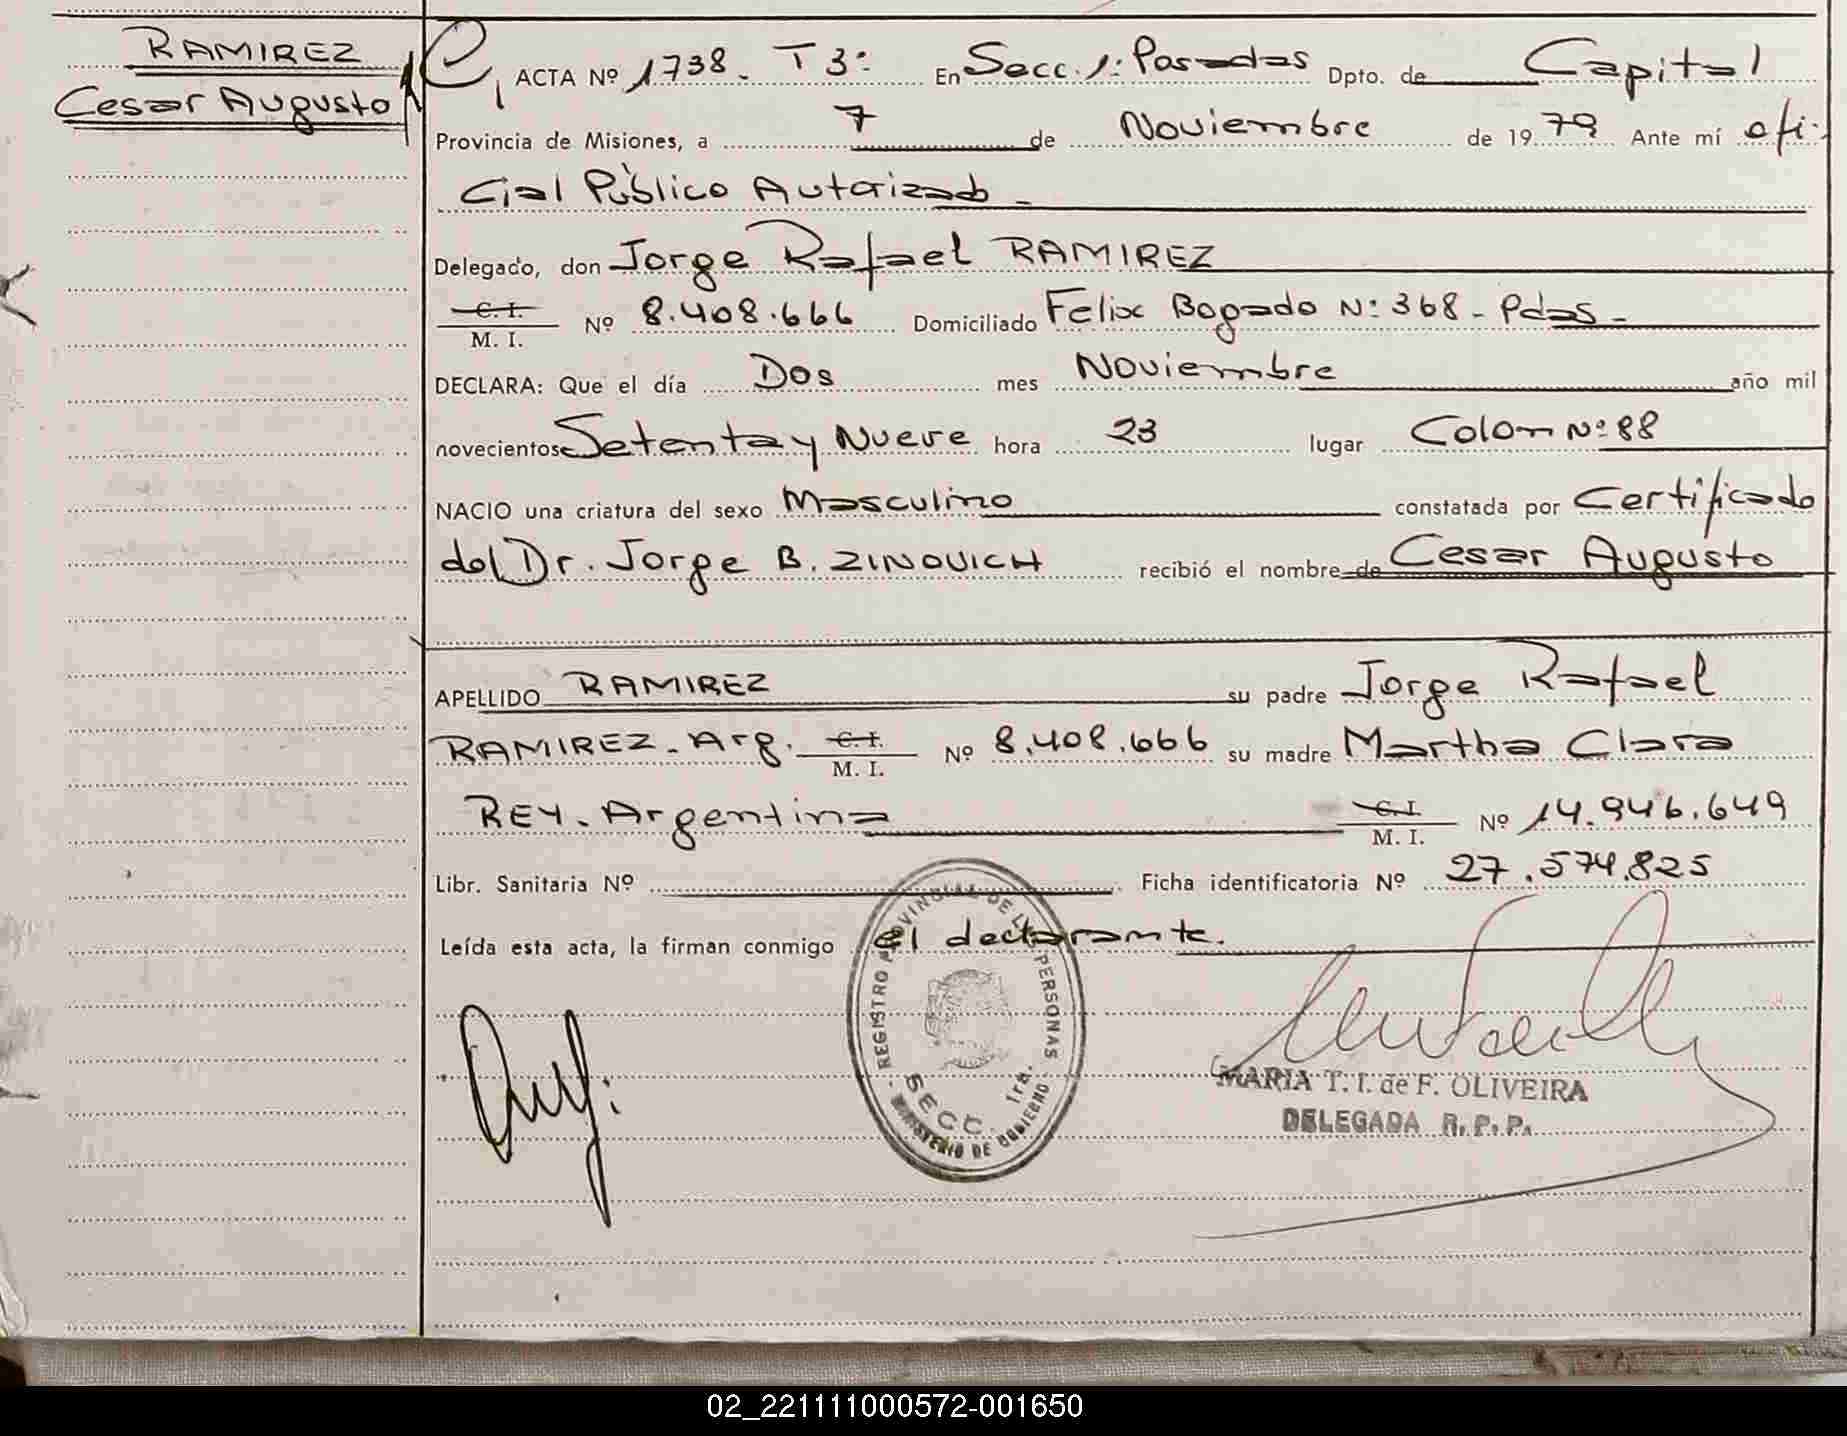 RAMIREZ
Cesar Augusto
ACTA Nº 1738. T 3º En Secc. 1º Posadas Dpto. de Capital
Provincia de Misiones, a 7 de Noviembre de 1979 Ante mí ofi-
cial Público Autorizado -
Delegado, don Jorge Rafael RAMIREZ
C. I.
M. I. Nº 8.408.666 Domiciliado Felix Bogado Nº 368 - Pdas -
DECLARA: Que el día Dos mes Noviembre año mil
novecientos Setenta y Nueve hora 23 lugar Colon Nº 88
NACIO una criatura del sexo Masculino constatada por Certificado
del Dr. Jorge B. ZINOVICH recibió el nombre de Cesar Augusto
APELLIDO RAMIREZ su padre Jorge Rafael
RAMIREZ - Arg. C. I. M. I. Nº 8.408.666 su madre Martha Clara
REY. Argentina C. I. M. I. Nº 14.946.649
Libr. Sanitaria Nº Ficha identificatoria Nº 27.574.825
Leída esta acta, la firman conmigo el declarante.
REGISTRO PROVINCIAL DE LAS PERSONAS
SECC. 1ra.
MINISTERIO DE GOBIERNO
MARIA T. I. de F. OLIVEIRA
DELEGADA R. P. P.
02_221111000572-001650